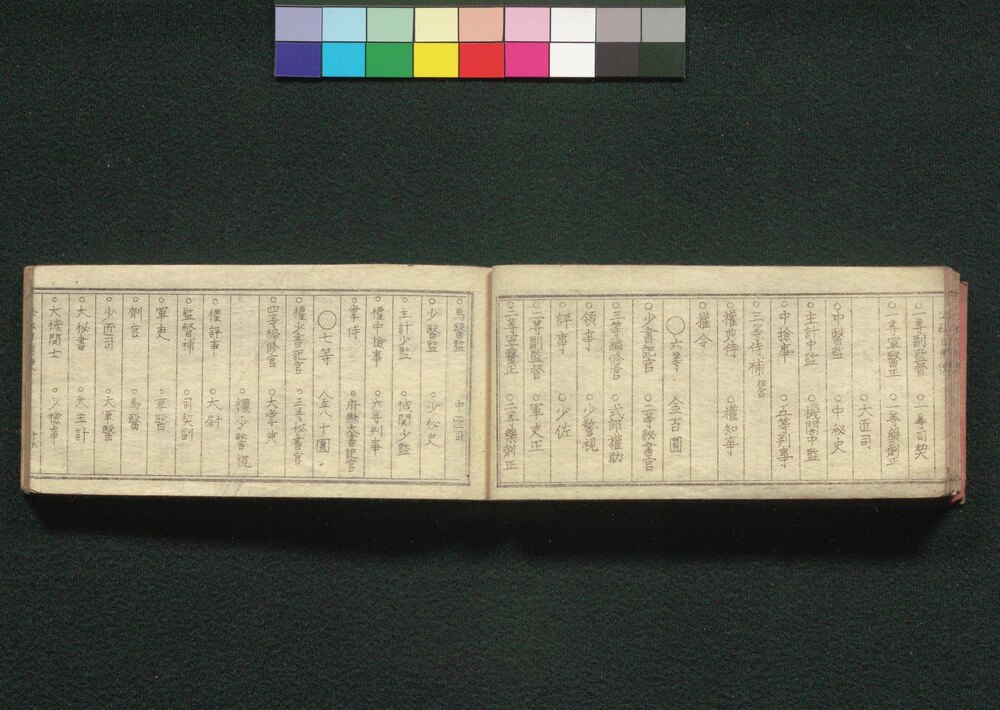 ○一等副監督 ○一等司契
○一等軍醫正 ○一等藥劑正
○大匠司
○中醫監 ○中秘史
○主計中監 ○機関中監
○中檢事 ○五等判事
○三等侍補
○權典侍 ○權知事
○權令
◯六等 金百圓
○少書記官 ○二等秘書官
○三等編修官 ○式部權助
○領事 ○少警視
○評事 ○少佐
○二等副監督 ○軍吏正
○二等軍醫正 ○二等藥劑正
○馬醫監 ○中匠司
○少醫監 ○少秘史
○主計少監 ○機関少監
○權中檢事 ○六等判事
○掌侍 ○府縣大書記官
◯七等 金八十圓
○權少書記官 ○三等秘書官
○四等編修官 ○大掌典
○權少警視
○權評事 ○大尉
○監督補 ○司契副
○軍吏 ○軍醫
○劑官 ○馬醫
○少匠司 ○大軍醫
○大秘書 ○大主計
○大機関士 ○少檢事